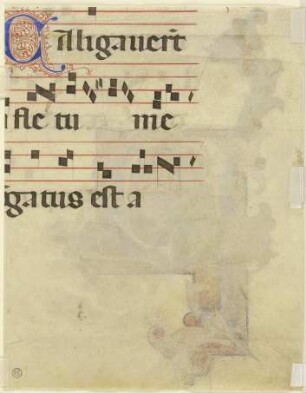 Calligauert
fle tu me
gatus est a